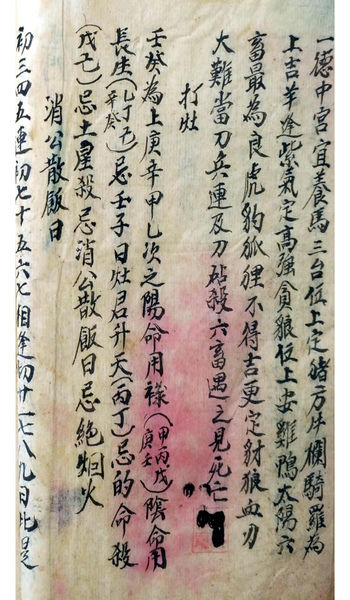 一德中宮宜養馬三台位上定猪方牛欄騎羅為
上吉羊逢紫氣定高强貪狼位上安雞鴨太陽六
畜最為良虎豹狐狸不得吉更定豺狼血刃
大難當刀兵連及刀砧殺六畜遇之見死亡
打灶
壬癸為上庚辛甲乙次之陽命用祿(甲丙戊庚壬)陰命用
長生(乙丁己辛癸)忌壬子日灶君升天(丙丁)忌的命殺
(戊己)忌土皇殺忌消公散飯日忌絕烟火
消公散飯日
初三四五連初七十五六七相逢初廿一七八九日此是